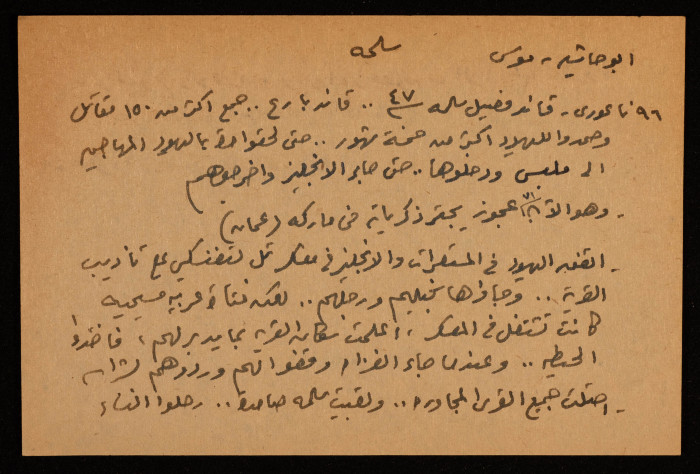 ابو حاشيه - موسى سلمه
٩٦ ناعورى - قائد فصيل سلمه ٤٧ .. قائد بارع .. جمع اكثر من ١٥٠ مقاتل
وصمدوا لليهود اكثر من خمسة شهور .. حتى لحقوا مرة باليهود المهاجمين
الى ملبس ودخلوها .. حتى جاء الانجليز واخرجوهم
- وهو الآن ٧١/٨ عجوز يجتر ذكرياته في ماركه (عمان)
- اتفق اليهود في المستعمرات والانجليز في معسكر تل لتفنسكي على تأديب
القرية .. وجاؤا بخيلهم ورجلهم .. لكن فتاة عربيه مسيحيه
كانت تشتغل في المعسكر ، أعلمت سكان القريه بما يدبر لهم ، فاخذوا
الحيطه .. وعندما جاء الغزاه وقفوا لهم وردوهم
- احتلت جميع القرى المجاوره .. وبقيت سلمه صامده .. رحلوا النساء